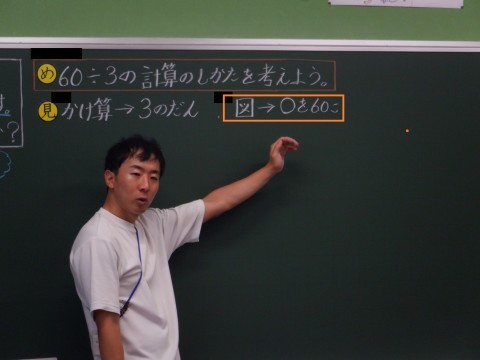 め 60÷3の計算のしかたを考えよう。
見 かけ算→3のだん 図→○を60こ
す。
?